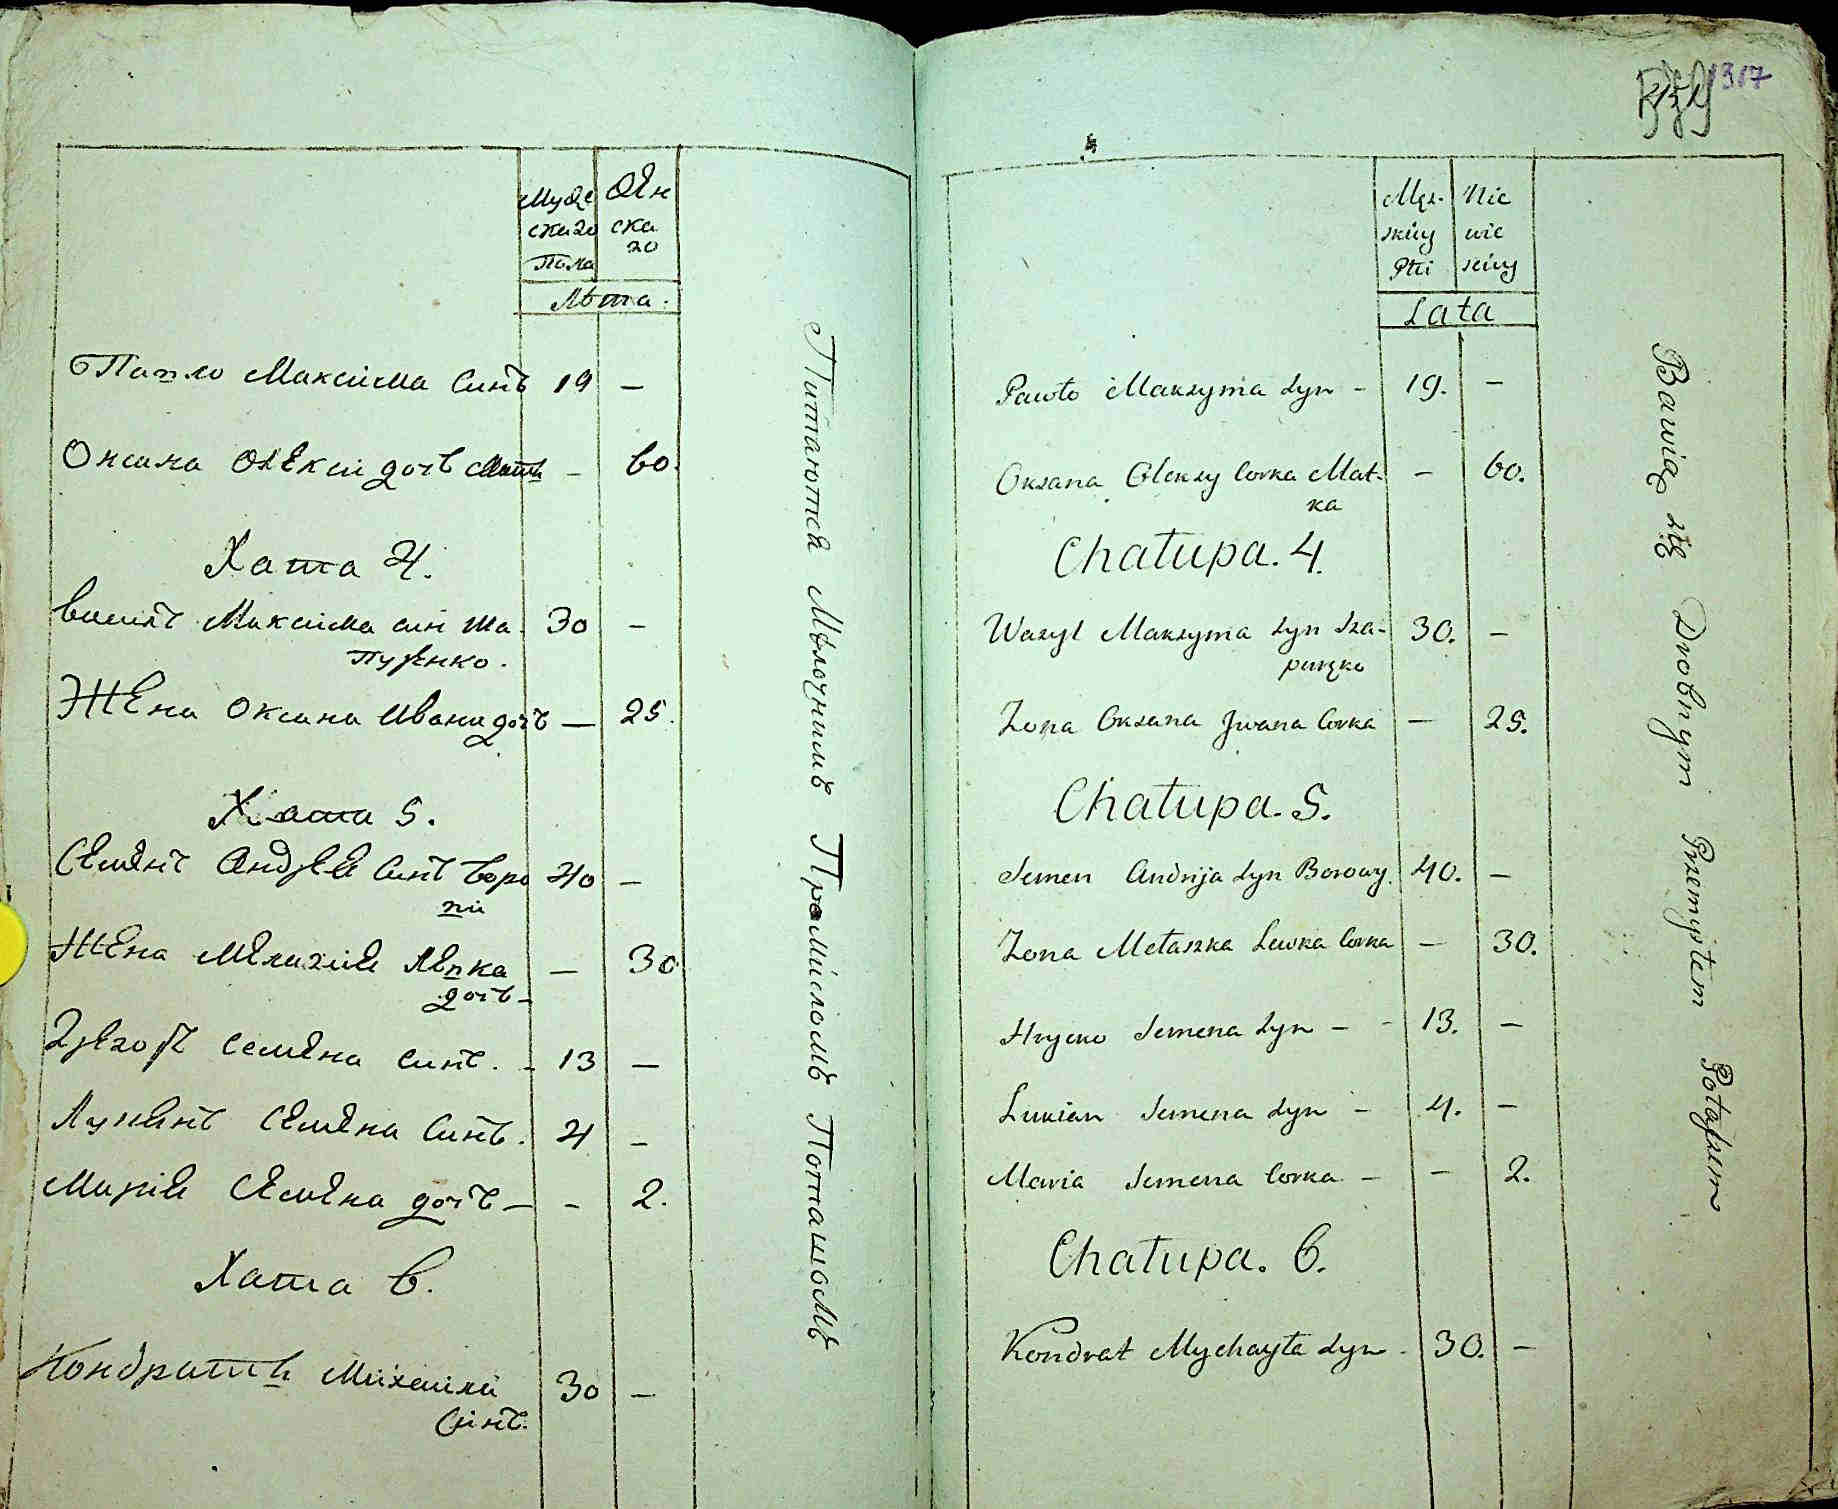 Муже
скаго
Пола
Жѣн
ска
го
Лѣта.
Павло Максима Синъ 19 —
Оксана Олекси дочь Мать — 60.
Хата 4.
Василь Максима син Ша 30 —
пуренко.
Жена Оксана Ивана дочь — 25.
Хата 5.
Семенъ Андрея Синъ Боро 40 —
вий
Жена Мелашия Левка — 30
дочь —
Григорь Семена Синъ. - 13 —
Лукянъ Семена Синъ. 4 —
Мария Семена дочь — - 2.
Хата 6.
Кондратъ Михаила 30 —
Синъ.
Питаются Мѣлочнимъ Промисломъ Поташомъ
317
Męz-
skiey
Płci
Nie
wie
sciey
Lata
Pawło Maxyma Syn - 19. —
Oxana Olexy Corka Mat- — 60.
ka
Chałupa. 4.
Wasyl Maxyma Syn Sza- 30. —
puręko
Zona Oxana Jwana Corka — 25.
Chałupa. 5.
Semen Andrija Syn Borowy. 40. —
Zona Mełaszka Lewka Corka — 30.
Hrycko Semena Syn — - 13. —
Lukian Semena Syn — 4. —
Maria Semena Corka — — 2.
Chałupa. 6.
Kondrat Mychayła Syn - 30. —
Bawią się Drobnym Przemysłem Potaszem